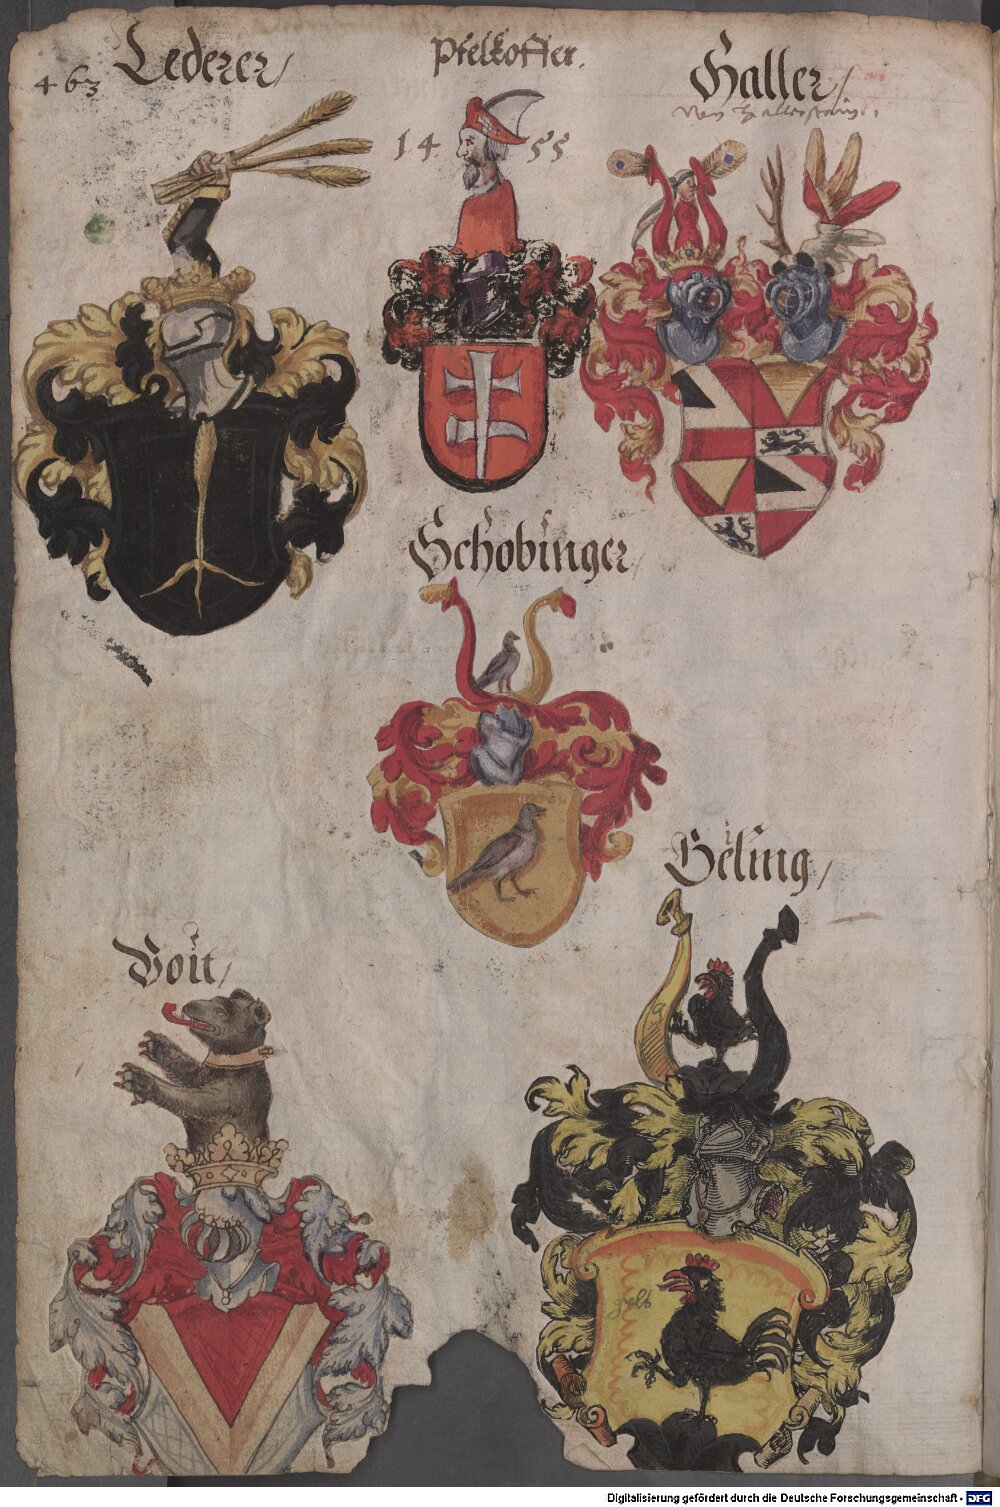 463
Lederer/
Pfelkoffer.
Haller/
von Hallerstain.
1455
Schobinger/
Beling/
Voit/
a
gelb
Digitalisierung gefördert durch die Deutsche Forschungsgemeinschaft - DFG